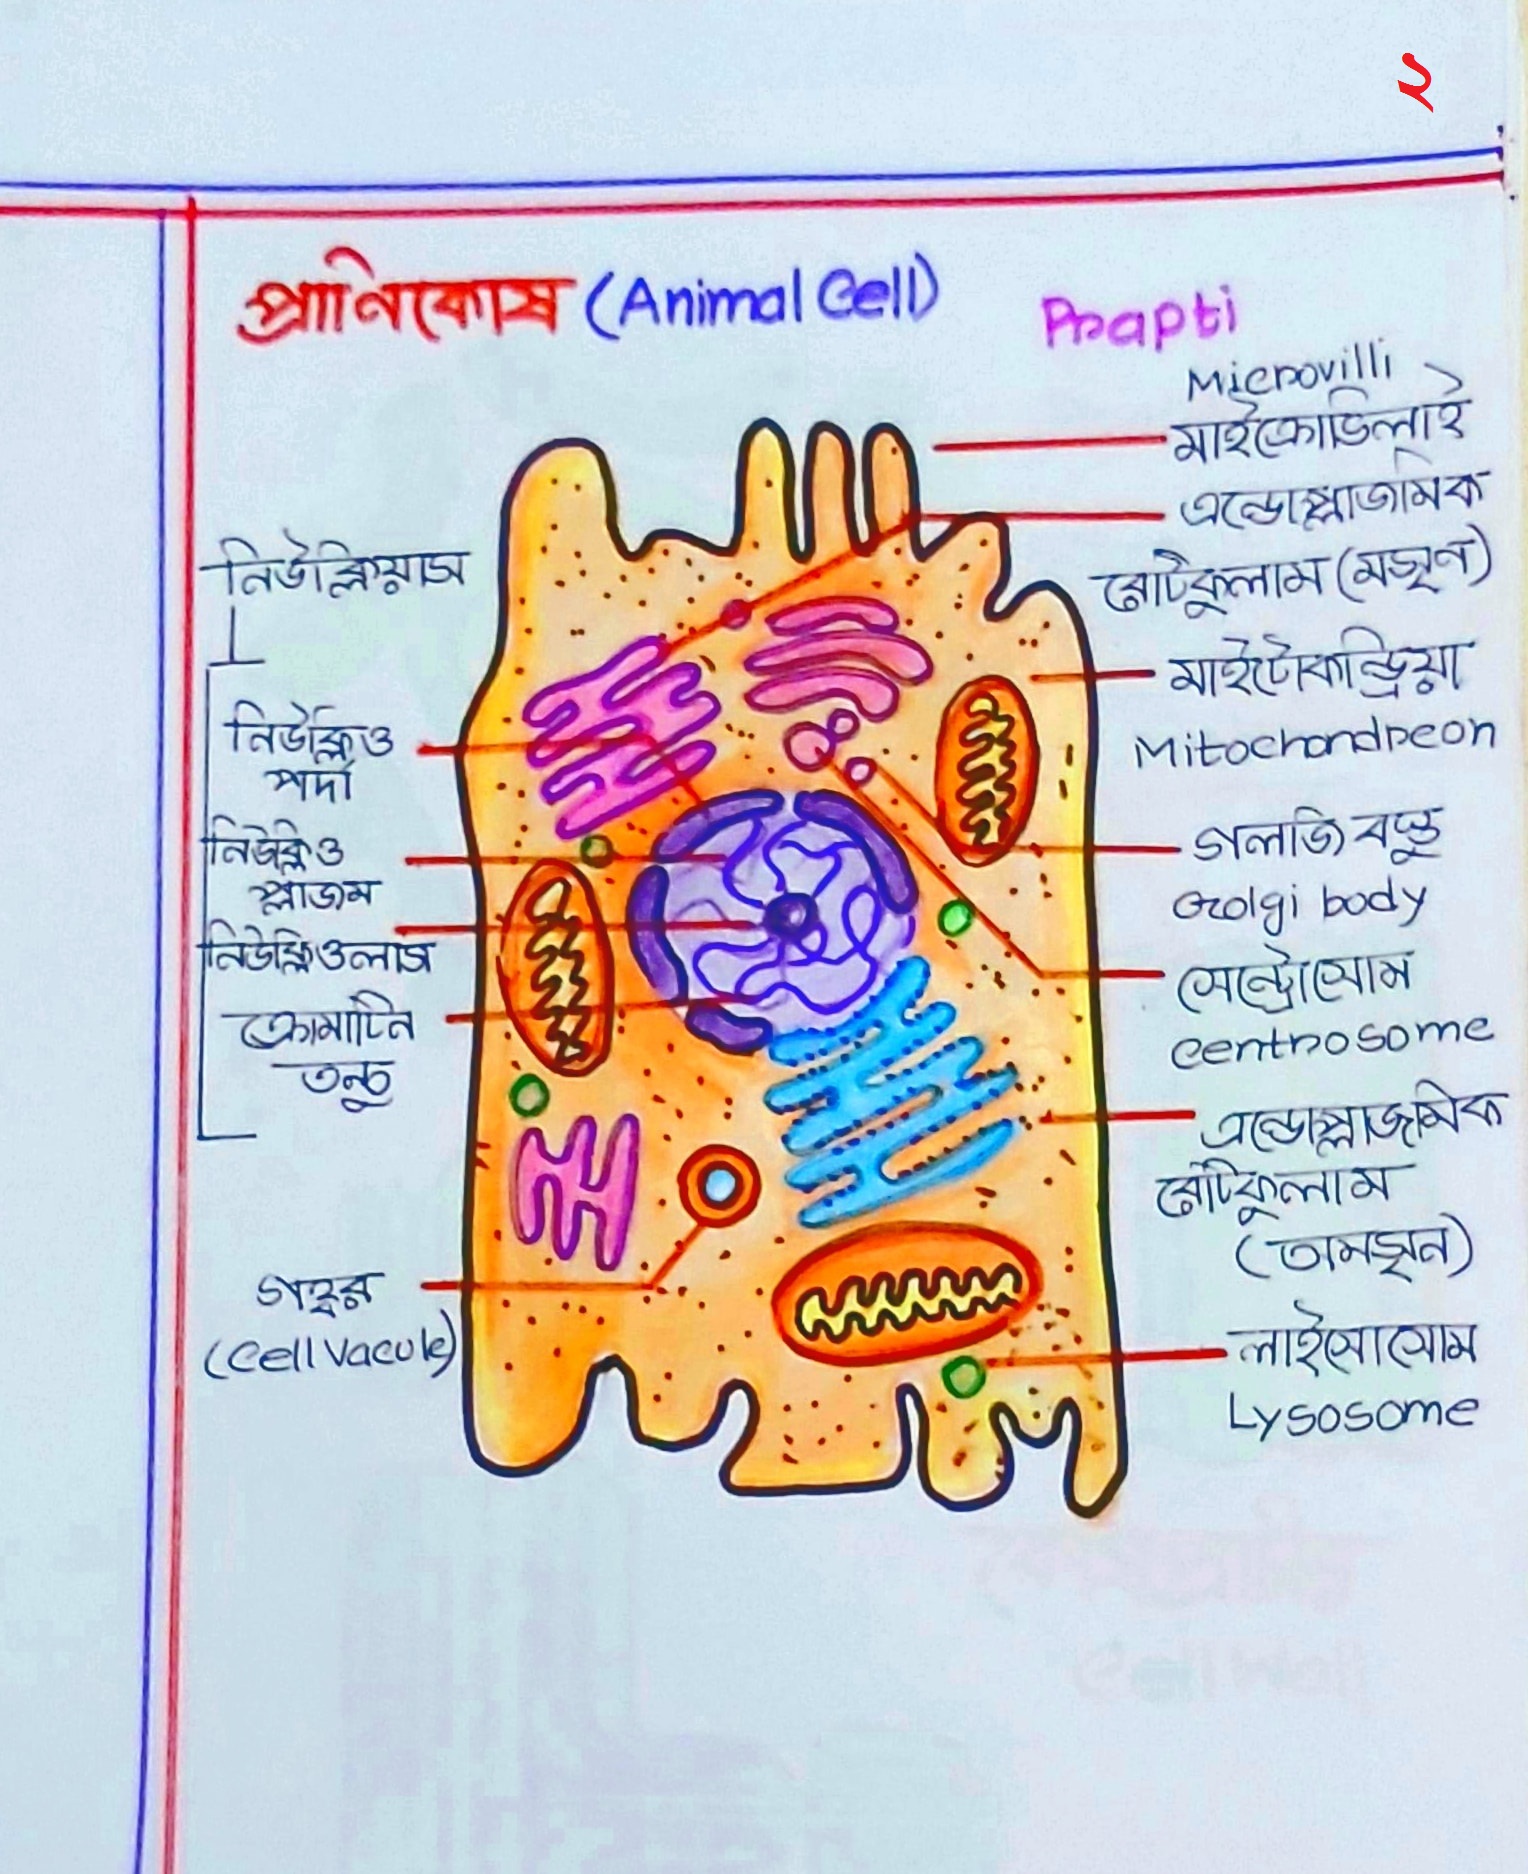 ২
প্রাণিকোষ (Animal Cell)
Prapti
Microvilli
মাইক্রোভিলাই
এন্ডোপ্লাজমিক
রেটিকুলাম (মসৃন)
মাইটোকন্ড্রিয়া
Mitochondreon
গলজি বস্তু
Golgi body
সেন্ট্রোসোম
centrosome
এন্ডোপ্লাজমিক
রেটিকুলাম
(অমসৃন)
লাইসোসোম
Lysosome
নিউক্লিয়াস
নিউক্লিও
পর্দা
নিউক্লিও
প্লাজম
নিউক্লিওলাস
ক্রোমাটিন
তন্তু
গহ্বর
(Cell Vacule)